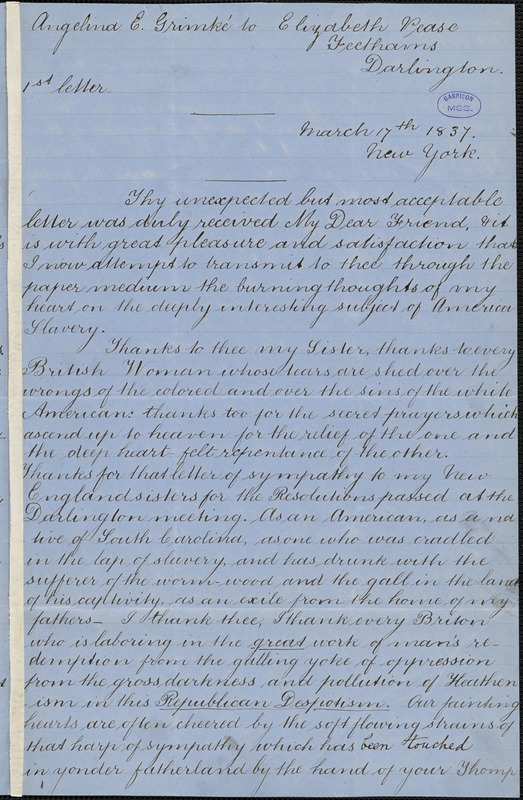 Angelina E. Grimké to Elizabeth Pease
Feethams
Darlington.
1st letter.
GARRISON
MSS.
March 17th 1837.
New York.
Thy unexpected but most acceptable
letter was duly received My Dear Friend, & it
is with great pleasure and satisfaction that
I now attempt to transmit to thee through the
paper medium the burning thoughts of my
heart on the deeply interesting subject of America
Slavery.
Thanks to thee my Sister, thanks to every
British Woman whose tears are shed over the
wrongs of the colored and over the sins of the white
American: thanks too for the secret prayers which
ascend up to heaven for the relief of the one and
the deep heart-felt repentance of the other.
Thanks for that letter of sympathy to my New
England sisters for the Resolutions passed at the
Darlington meeting. As an American, as a na
tive of South Carolina, as one who was cradled
in the lap of slavery, and has drunk with the
sufferer of the worm-wood and the gall in the land
of his captivity, as an exile from the home of my
fathers— I thank thee, I thank every Briton
who is laboring in the great work of man's re-
demption from the galling yoke of oppression
from the gross darkness and pollution of Heathen
ism in this Republican Despotism. Our fainting
hearts are often cheered by the soft flowing strains of
that harp of sympathy which has been touched
in yonder fatherland by the hand of your Thomp